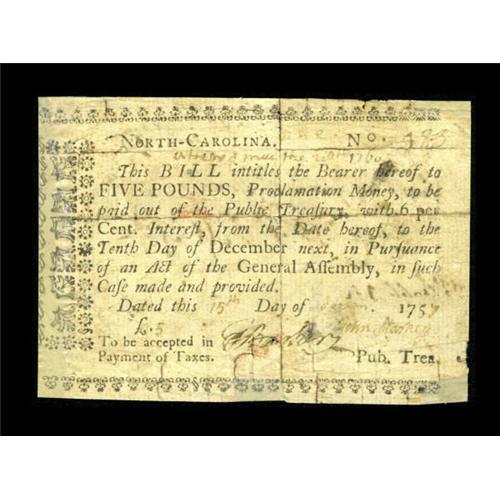 NORTH-CAROLINA. No.
This BILL intitles the Bearer hereof to
FIVE POUNDS, Proclamation Money, to be
paid out of the Public Treasury, with 6 per
Cent. Interest, from the Date hereof, to the
Tenth Day of December next, in Pursuance
of an Act of the General Assembly, in such
Case made and provided.
Dated this 15th Day of 1757
£.5
To be accepted in
Payment of Taxes. Pub. Trea.